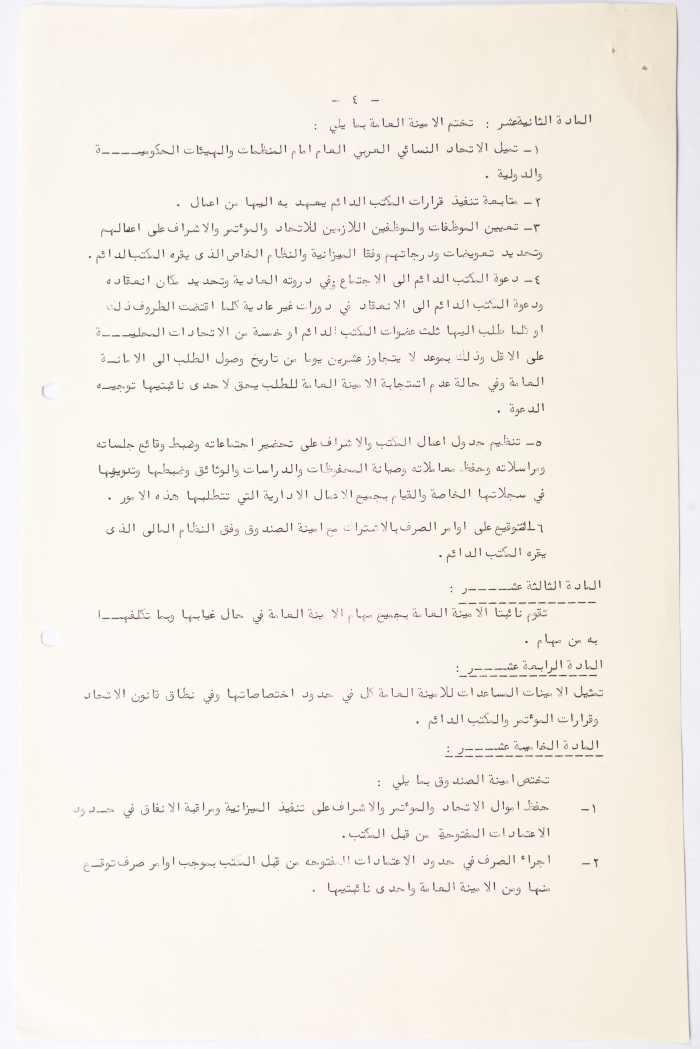 - ٤ -
المادة الثانية عشر : تختم الامينة العامة بما يلي :
١- تميل الاتحاد النسائي العربي العام امام المنظمات والهيئات الحكوميـــــة
والدولية .
٢- متابعة تنفيذ قرارات المكتب الدائم يعهد به اليها من اعمال .
٣- تعيين الموظفات والموظفين اللازمين للاتحاد والمؤتمر والاشراف على اعمالهم
وتحديد تعويضات ودرجاتهم وفقا الميزانية والنظام الخاص الذى يقره المكتب الدائم .
٤- دعوة المكتب الدائم الى الاجتماع وفي دروته العادية وتحديد مكان انعقاده
ودعوة المكتب الدائم الى الانعقاد في دورات غير عادية كلما اقتضت الظروف ذلك
او كلما طلب اليها ثلث عضوات المكتب الدائم او خمسة من الاتحادات المحليـــــة
على الاقل وذلك بموعد لا يتجاوز عشرين يوما من تاريخ وصول الطلب الى الامانـة
العامة وفي حالة عدم استجابة الامينة العامة للطلب يحق لاحدى نائبتيها توجيـه
الدعوة .
٥- تنظيم جدول اعمال المكتب والاشراف على تحضير اجتماعاته وضبط وقائع جلساته
ومراسلاته وحفظ معاملاته وصيانة المحفوظات والدراسات والوثائق وضبطها وتدوينها
في سجلاتها الخاصة والقيام بجميع الاعمال الادارية التي تتطلبها هذه الامور .
٦- التوقيع على اوامر الصرف بالاشتراك مع امينة الصندوق وفق النظام المالى الذى
يقره المكتب الدائم .
المادة الثالثة عشـــــر :
تقوم نائبتا الامينة العامة بجميع مهام الامينة العامة في حال غيابها وبما تكلفهـــا
به من مهام .
المادة الرابعة عشـــــر :
تمثيل الامينات المساعدات للامينة العامة كل في حدود اختصاصاتها وفي نطاق قانون الاتحاد
وقرارات المؤتمر والمكتب الدائم .
المادة الخامسة عشـــــر :
تختص امينة الصندوق بما يلي :
١- حفظ اموال الاتحاد والمؤتمر والاشراف على تنفيذ الميزانية ومراقبة الانفاق في حـــدود
الاعتمادات المفتوحة من قبل المكتب .
٢- اجراء الصرف في حدود الاعتمادات المفتوحه من قبل المكتب بموجب اوامر صرف توقـع
منها ومن الامينة العامة واحدى نائبتيها .